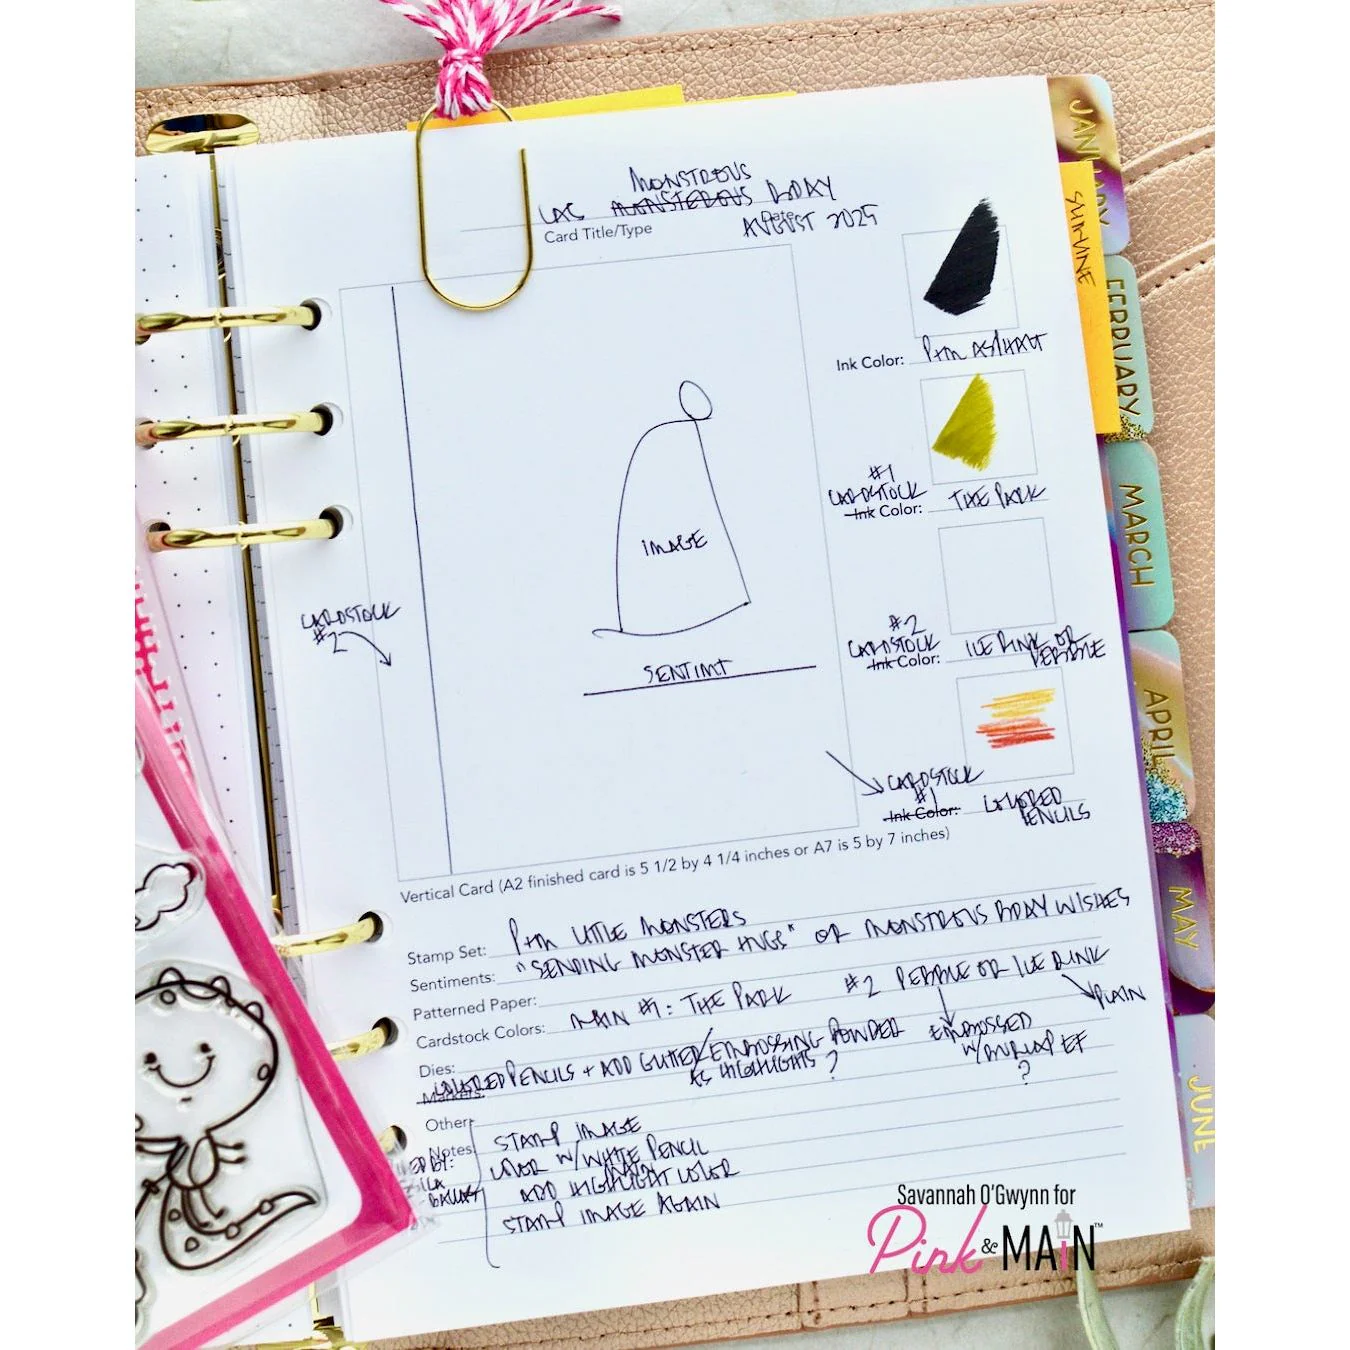 MONSTROUS
MONSTEROUS BDAY
Date
AUGUST 2025
Card Title/Type
JANUARY
SUNVINE
FEBRUARY
MARCH
APRIL
MAY
JUNE
Ink Color: P+M ASPHALT
#1
CARDSTOCK
Ink Color: THE PARK
#2
CARDSTOCK
Ink Color: ICE RINK OR
PEBBLE
CARDSTOCK
#1
Ink Color: COLORED
PENCILS
CARDSTOCK
#2
IMAGE
SENTIMT
Vertical Card (A2 finished card is 5 1/2 by 4 1/4 inches or A7 is 5 by 7 inches)
Stamp Set: P+M LITTLE MONSTERS
Sentiments: "SENDING MONSTER HUGS" OR MONSTROUS BDAY WISHES
Patterned Paper:
Cardstock Colors: MAIN #1: THE PARK #2 PEBBLE OR ICE RINK
PLAIN
EMBOSSED
W/ EF
?
Dies:
Markers: COLORED PENCILS + ADD GLITTER/EMBOSSING POWDER
AS HIGHLIGHTS ?
Other:
Notes: STAMP IMAGE
COLOR W/ WHITE PENCIL
ADD MAIN HIGHLIGHT COLOR
STAMP IMAGE AGAIN
Savannah O'Gwynn for
Pink & MAIN™